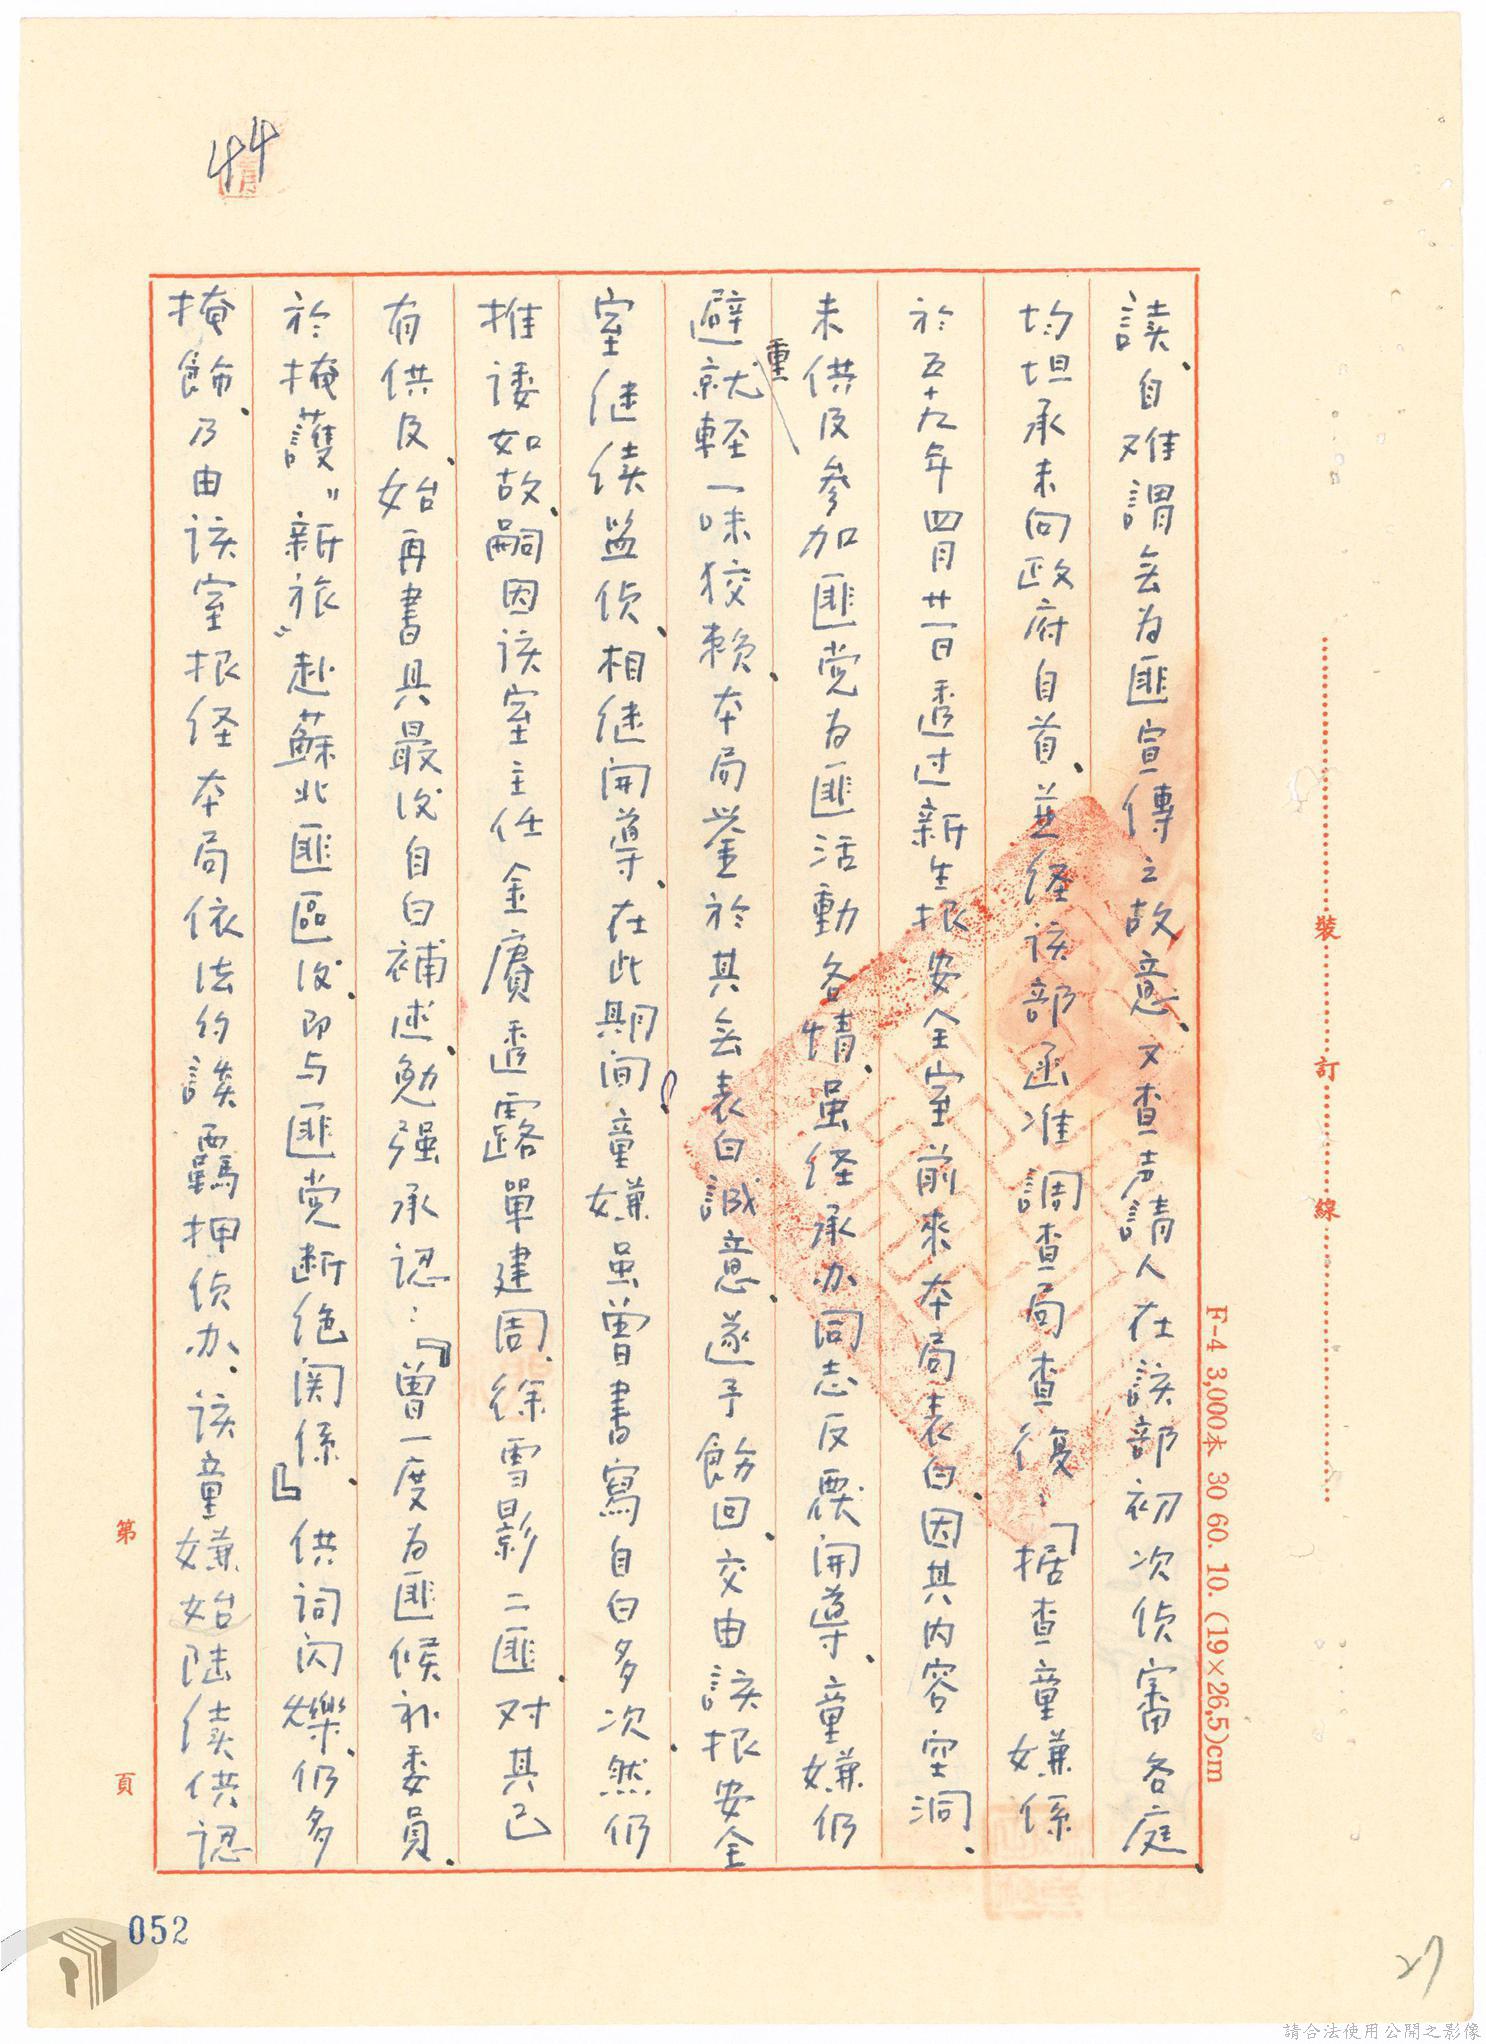 44
讀、自难謂無为匪宣傳之故意、又查声請人在該部初次侦審各庭
均坦承未向政府自首、並经该部函准調查局查復：「据查童嫌係
於五十九年四月廿一日透过新生报安全室前來本局表白、因其内容空洞、
未供及參加匪党为匪活動各情、虽经承办同志反覆開導、童嫌仍
避重就輕一味狡賴、本局鉴於其無表白誠意、遂予飭回、交由該报安全
室继续监侦、相继開導、在此期间童嫌虽曾書寫自白多次、然仍
推诿如故、嗣因该室主任金賡透露單建周、徐雪影二匪、对其已
有供及、始再書具最后自白補述、勉强承认：『曾一度为匪候补委員、
於掩護〝新旅〞赴蘇北匪區後、即与匪党断绝関係、』供词闪爍、仍多
掩飾、乃由该室报经本局依法约談羈押侦办、该童嫌始陆续供认
裝
訂
線
F-4 3,000本 30 60. 10. (19×26,5)cm
第
頁
052
27
請合法使用公開之影像